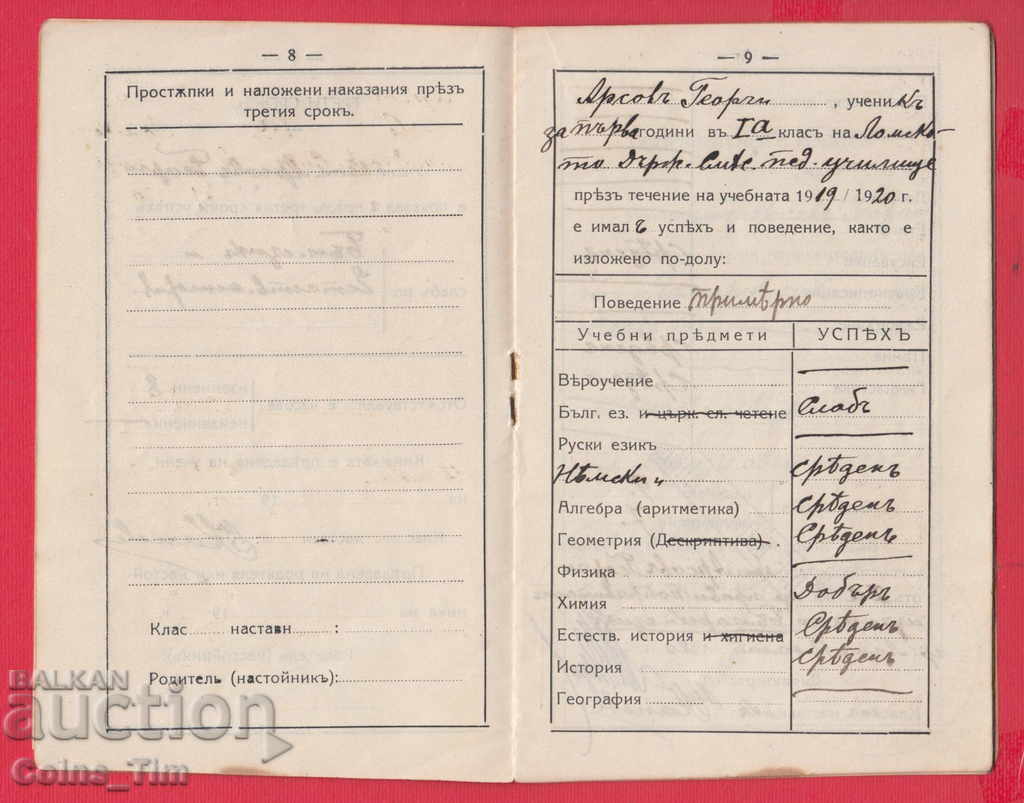 — 8 —
Простѫпки и наложени наказания прѣзъ
третия срокъ.
Клас наставн :
Родитель (настойникъ):
— 9 —
Арсовъ Георги , ученикъ
за първа години въ Iа класъ на Ломско-
то Държ. Смѣс. пед. училище
прѣзъ течение на учебната 1919/1920 г.
е ималъ успѣхъ и поведение, както е
изложено по-долу:
Поведение примѣрно
Учебни прѣдмети УСПѢХЪ
Вѣроучение —
Бълг. ез. и църк. сл. четене Слабъ
Руски езикъ —
Нѣмски „ срѣденъ
Алгебра (аритметика) Срѣденъ
Геометрия (Дескриптива) . Срѣденъ
Физика —
Химия Добъръ
Естеств. история и хигиена Срѣденъ
История срѣденъ
География —
BALKAN
auction
Coins_Tim